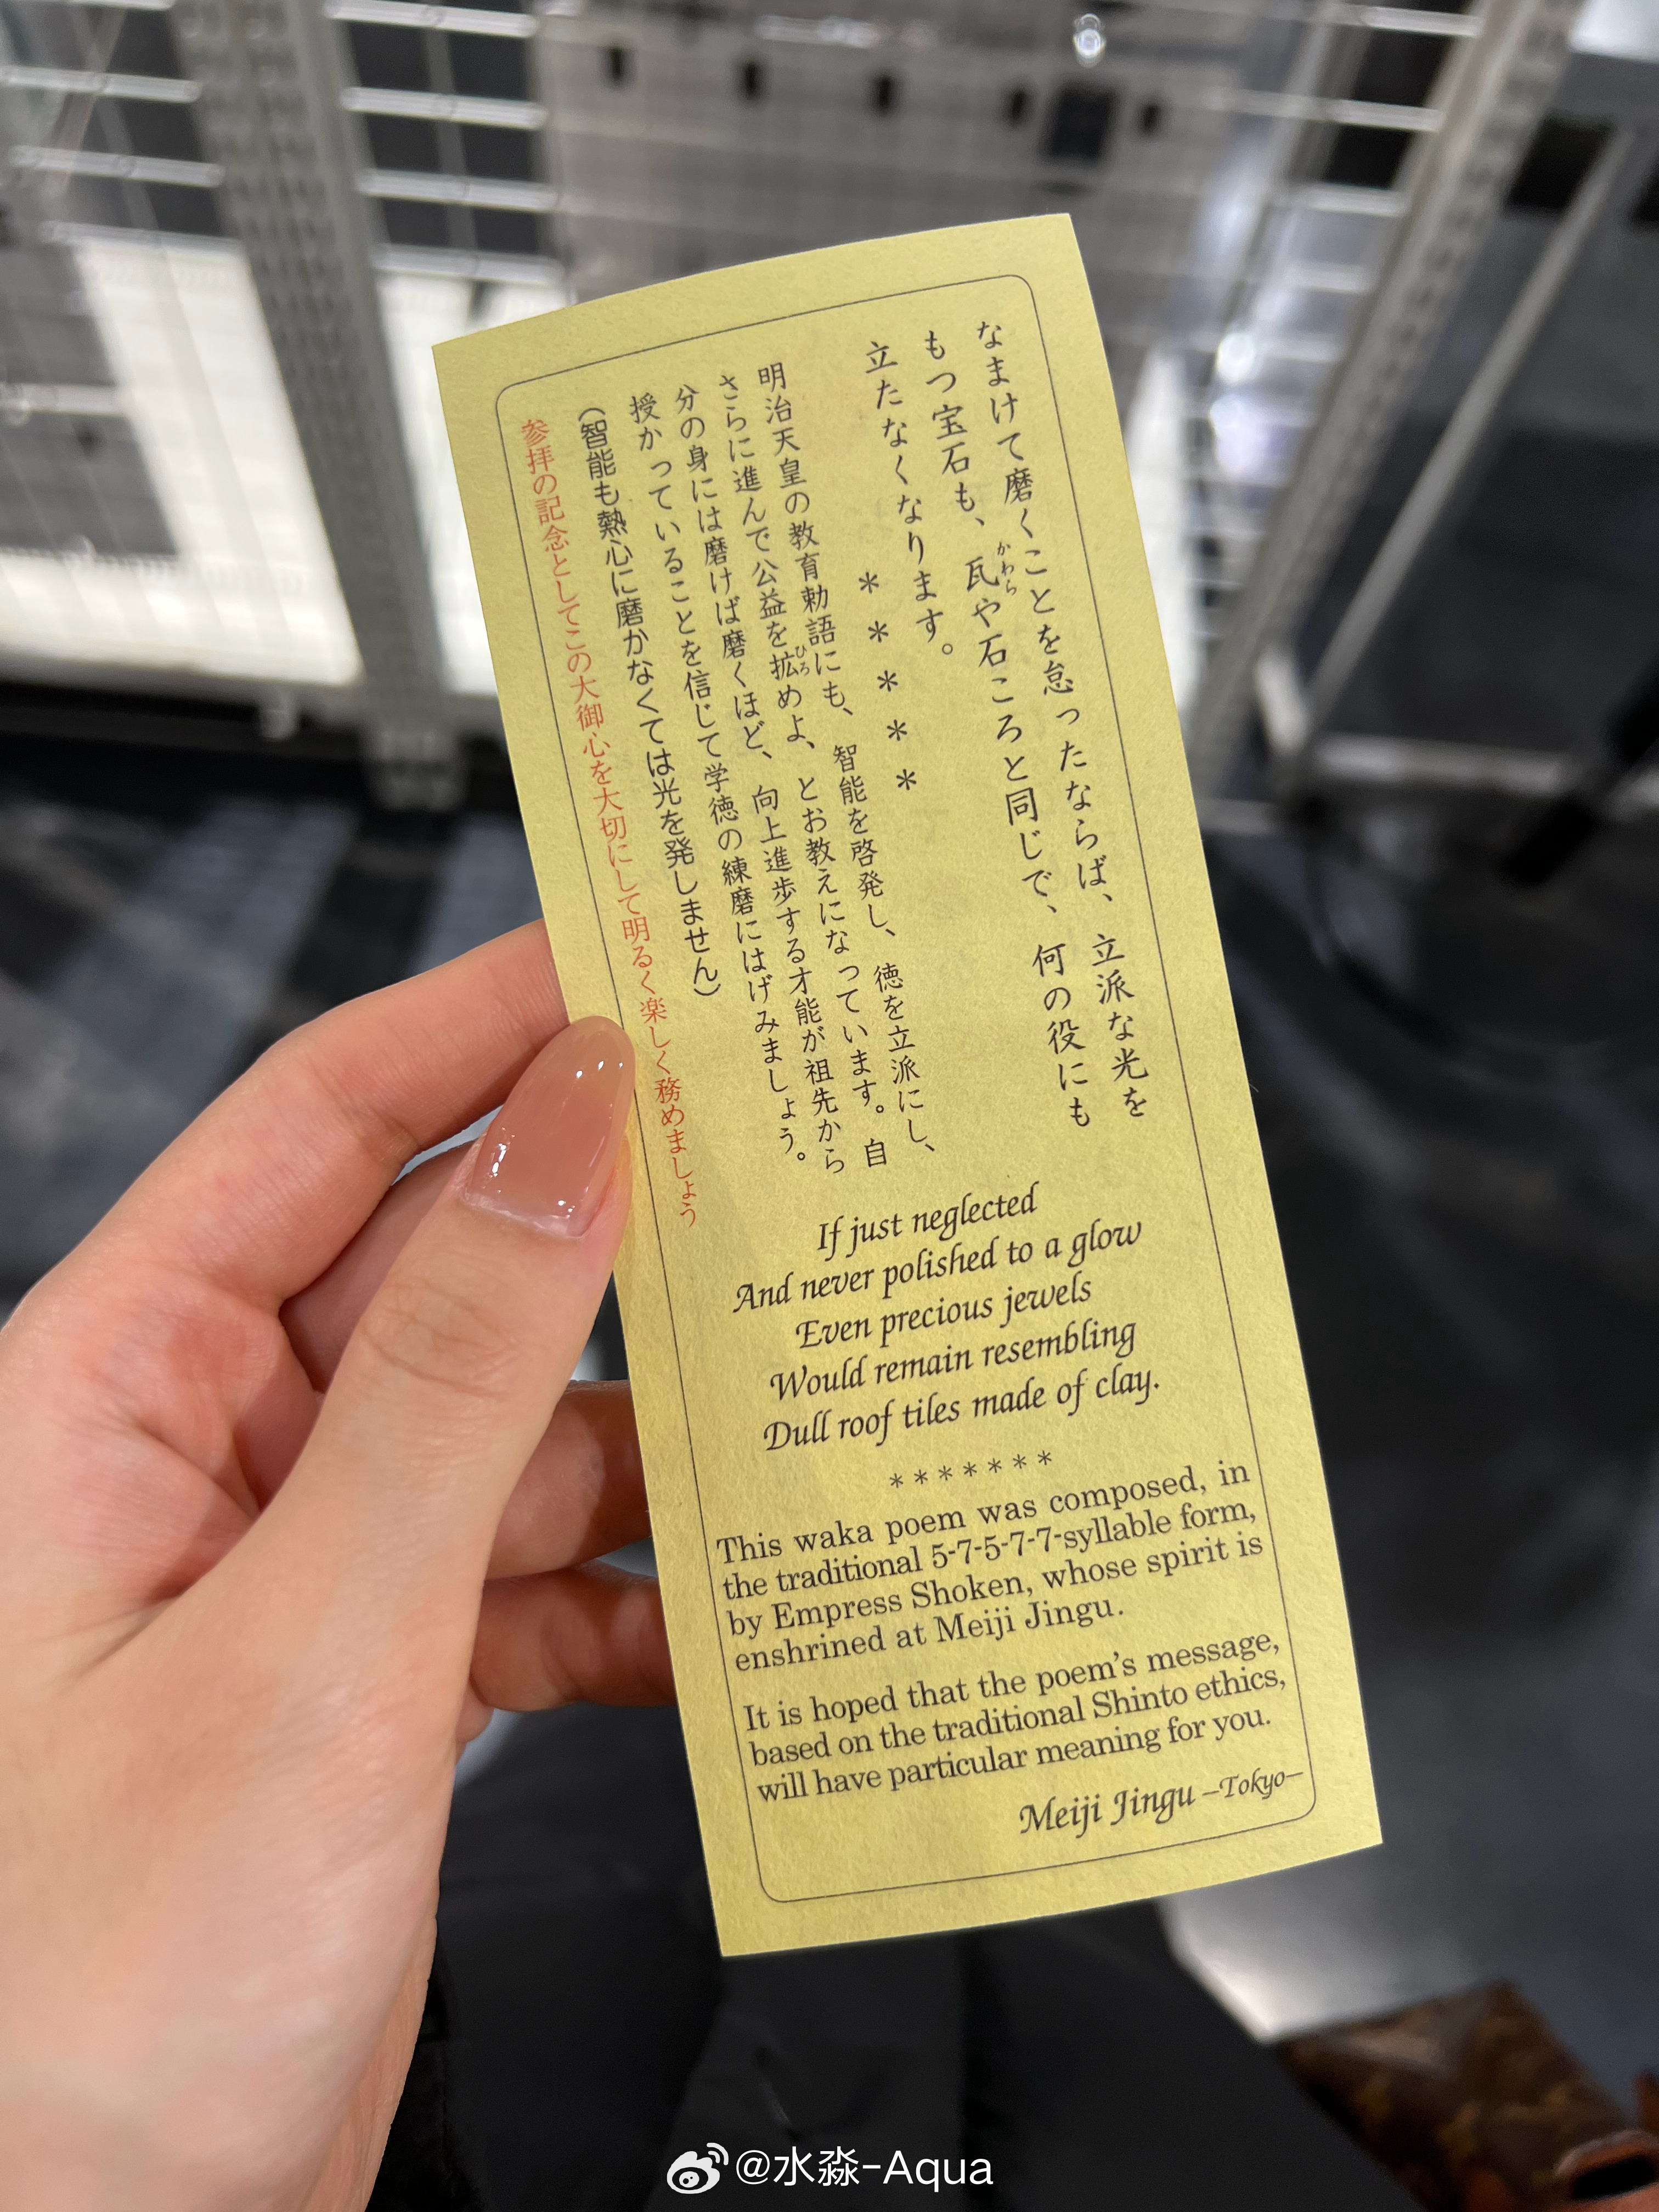 なまけて磨くことを怠ったならば、立派な光を
もつ宝石も、瓦や石ころと同じで、何の役にも
かわら
立たなくなります。
＊＊＊＊＊
明治天皇の教育勅語にも、智能を啓発し、徳を立派にし、
さらに進んで公益を拡めよ、とお教えになっています。自
ひろ
分の身には磨けば磨くほど、向上進歩する才能が祖先から
授かっていることを信じて学徳の練磨にはげみましょう。
（智能も熱心に磨かなくては光を発しません）
参拝の記念としてこの大御心を大切にして明るく楽しく務めましょう
If just neglected
And never polished to a glow
Even precious jewels
Would remain resembling
Dull roof tiles made of clay.
*******
This waka poem was composed, in
the traditional 5-7-5-7-7-syllable form,
by Empress Shoken, whose spirit is
enshrined at Meiji Jingu.
It is hoped that the poem's message,
based on the traditional Shinto ethics,
will have particular meaning for you.
Meiji Jingu –Tokyo–
@水淼-Aqua